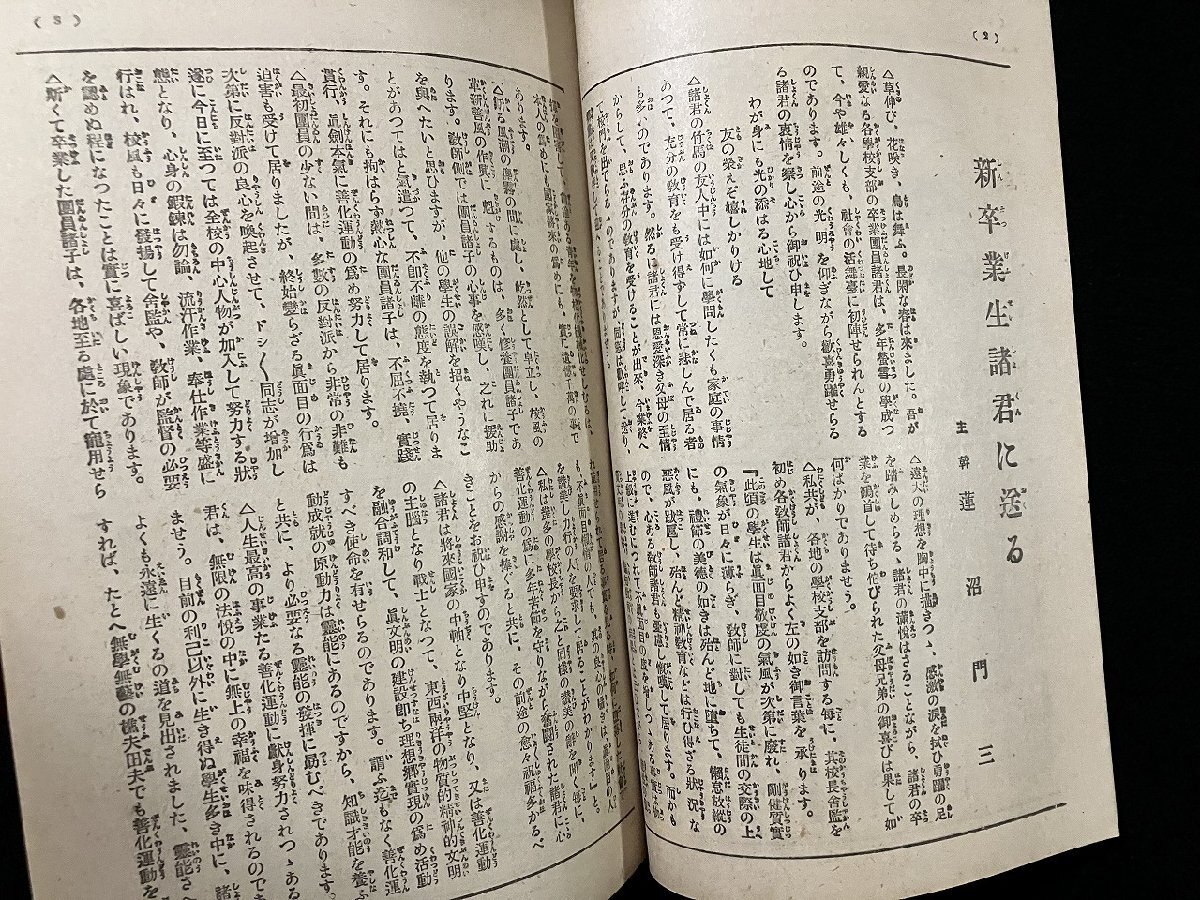 (2)
新卒業生諸君に送る
主幹 蓮沼門三
△草伸び、花咲き、鳥は舞ふ。長閑な春は來ました。吾が
親愛なる各學校支部の卒業團員諸君は、多年螢雪の學成つ
て、今や雄々しくも、社會の活舞臺に初陣せられんとする
のであります。前途の光明を仰ぎながら歡喜勇躍せらる
る諸君の衷情を察し心から御祝ひ申します。
わが身にも光の添はる心地して
友の榮えぞ嬉しかりける
△諸君の竹馬の友人中には如何に學問したくも家庭の事情
あつて、充分の敎育をも受け得ずして常に悲しんで居る者
も多いのであります。然るに諸君には恩愛深き父母の至情
からして、思ふ存分の敎育を受けることが出來、今業終へ
△遠大の理想を胸中に描きつゝ、感激の涙を拭ひ勇躍の足
を踏みしめらるゝ諸君の滿悅はさることながら、諸君の卒
業を鶴首して待ち侘びられた父母兄弟の御喜びは果して如
何ばかりでありませう。
△私共が、各地の學校支部を訪問する每に、其校長舍監を
初め各敎師諸君からよく左の如き御言葉を承ります。
『此頃の學生は眞面目敬虔の氣風が次第に廢れ、剛健質實
の氣象が日々に薄らぎ、敎師に對しても生徒間の交際の上
にも、禮師の美德の如きは殆んど地に墮ちて、懶惰放縱の
惡風が跋扈し、殆んど精神敎育などは行ひ得ざる狀況な
ので、心ある敎師諸君も憂慮し
(3)
あります。
△斯る風潮の瀰漫の間に處し、毅然として卓立し、校風の
革新善風の作興に 努するものは、多く修養團員諸子であ
ります。敎師側では團員諸子の心事を感嘆し、之れに援助
を與へたいと思ひますが、他の學生の誤解を招くやうなこ
とがあつてはと氣遣つて、不卽不離の態度を執つて居りま
す。それにも拘はらず熱心な團員諸子は、不屈不撓、實踐
貫行、眞劍本氣に善化運動の爲め努力して居ります。
△最初團員の少ない間は、多數の反對派から非常の非難も
迫害も受けて居りましたが、終始變らざる眞面目の行爲は
次第に反對派の良心を喚起させて、ドシ〱同志が增加し
遂に今日に至つては全校の中心人物が加入して努力する狀
態となり、心身の鍛鍊は勿論、流汗作業、奉仕作業等盛に
行はれ、校風も日々に發揚して舍監や、敎師が監督の必要
を認めぬ程になつたことは實に喜ばしい現象であります。
△斯くて卒業した團員諸子は、各地至る處に於て寵用せら
△私は幾多の學校長から之と同樣の讚美の辭を聞く每に、
善化運動の爲に多年苦節を守りながら奮鬪された諸君に心
からの感謝を捧ぐると共に、その前途の愈々祝福多かるべ
きことをお祝ひ申すのであります。
△諸君は將來國家の中軸となり中堅となり、又は善化運動
の主腦となり戰士となつて、東西兩洋の物質的精神的文明
を融合調和して、眞文明の建設卽ち理想鄕實現の爲め活動
すべき使命を有せらるのであります。謂ふ迄もなく善化運
動成就の原動力は靈能にあるのですから、知識才能を養ふ
と共に、より必要なる靈能の發揮に勗むべきであります。
△人生最高の事業たる善化運動に獻身努力されつゝある
君は、無限の法悅の中に無上の幸福を味得されるのでき
ませう。目前の利己以外に生き得ぬ學生多き中に、諸
よくも永遠に生くるの道を見出されました、靈能さへ
すれば、たとへ無學無藝の樵夫田夫でも善化運動を